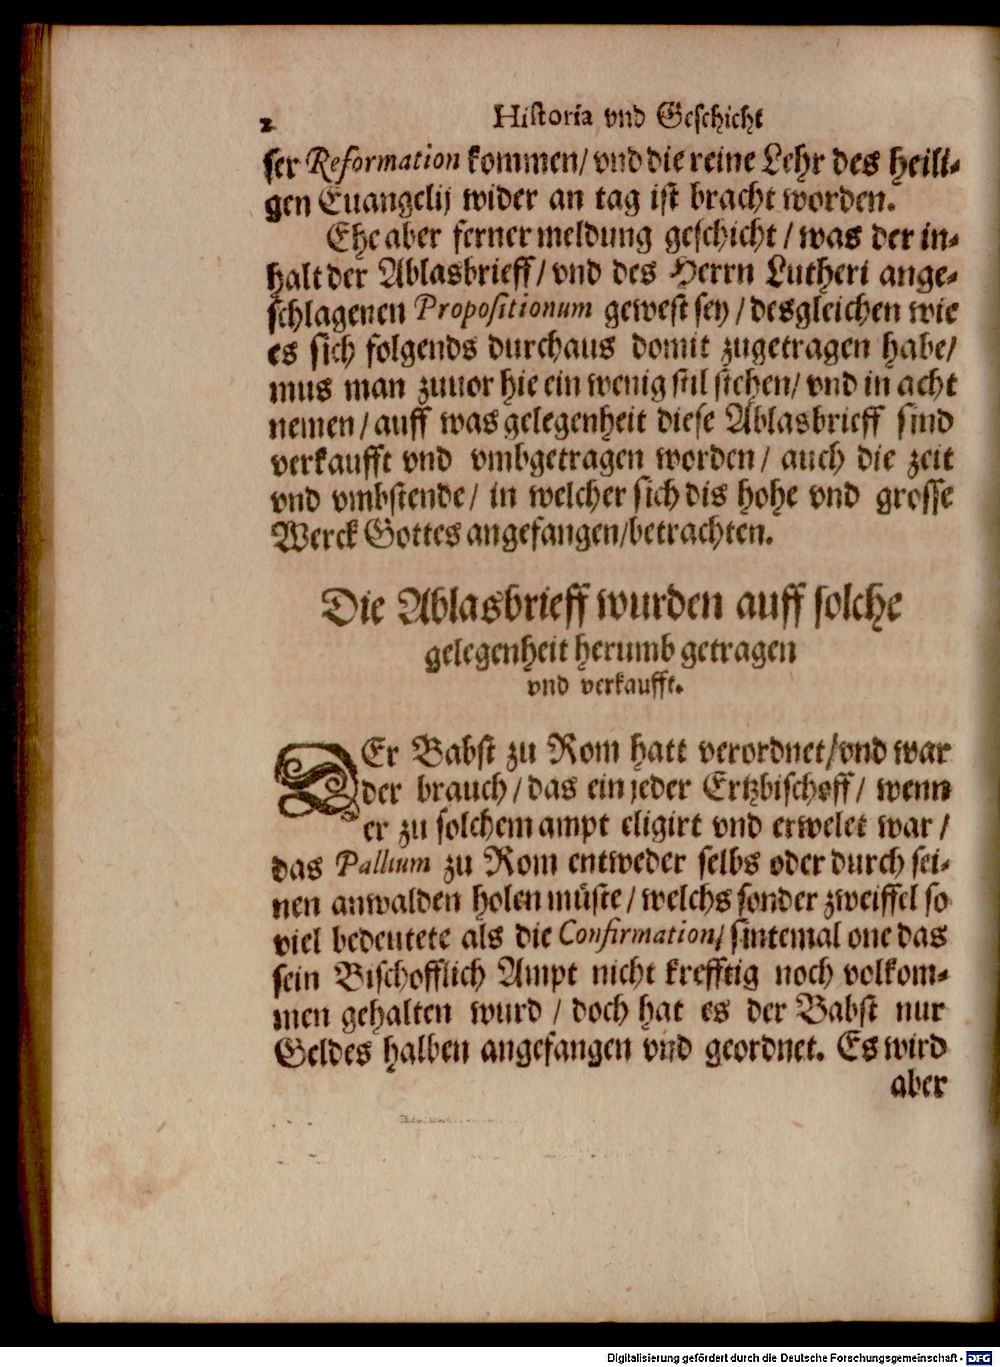 2 Historia vnd Geschicht
ser Reformation kommen/ vnd die reine Lehr des heili-
gen Euangelij wider an tag ist bracht worden.
Ehe aber ferner meldung geschicht / was der in-
halt der Ablasbrieff / vnd des Herrn Lutheri ange-
schlagenen Propositionum gewest sey / desgleichen wie
es sich folgends durchaus domit zugetragen habe/
mus man zuuor hie ein wenig stil stehen/ vnd in acht
nemen / auff was gelegenheit diese Ablasbrieff sind
verkaufft vnd vmbgetragen worden / auch die zeit
vnd vmbstende / in welcher sich dis hohe vnd grosse
Werck Gottes angefangen/betrachten.
Die Ablasbrieff wurden auff solche
gelegenheit herumb getragen
vnd verkaufft.
DEr Babst zu Rom hatt verordnet/vnd war
der brauch / das ein jeder Ertzbischoff / wenn
er zu solchem ampt eligirt vnd erwelet war /
das Pallium zu Rom entweder selbs oder durch sei-
nen anwalden holen müste / welchs sonder zweiffel so
viel bedeutete als die Confirmation/ sintemal one das
sein Bischofflich Ampt nicht krefftig noch volkom-
men gehalten wurd / doch hat es der Babst nur
Geldes halben angefangen vnd geordnet. Es wird
aber
Digitalisierung gefördert durch die Deutsche Forschungsgemeinschaft - DFG